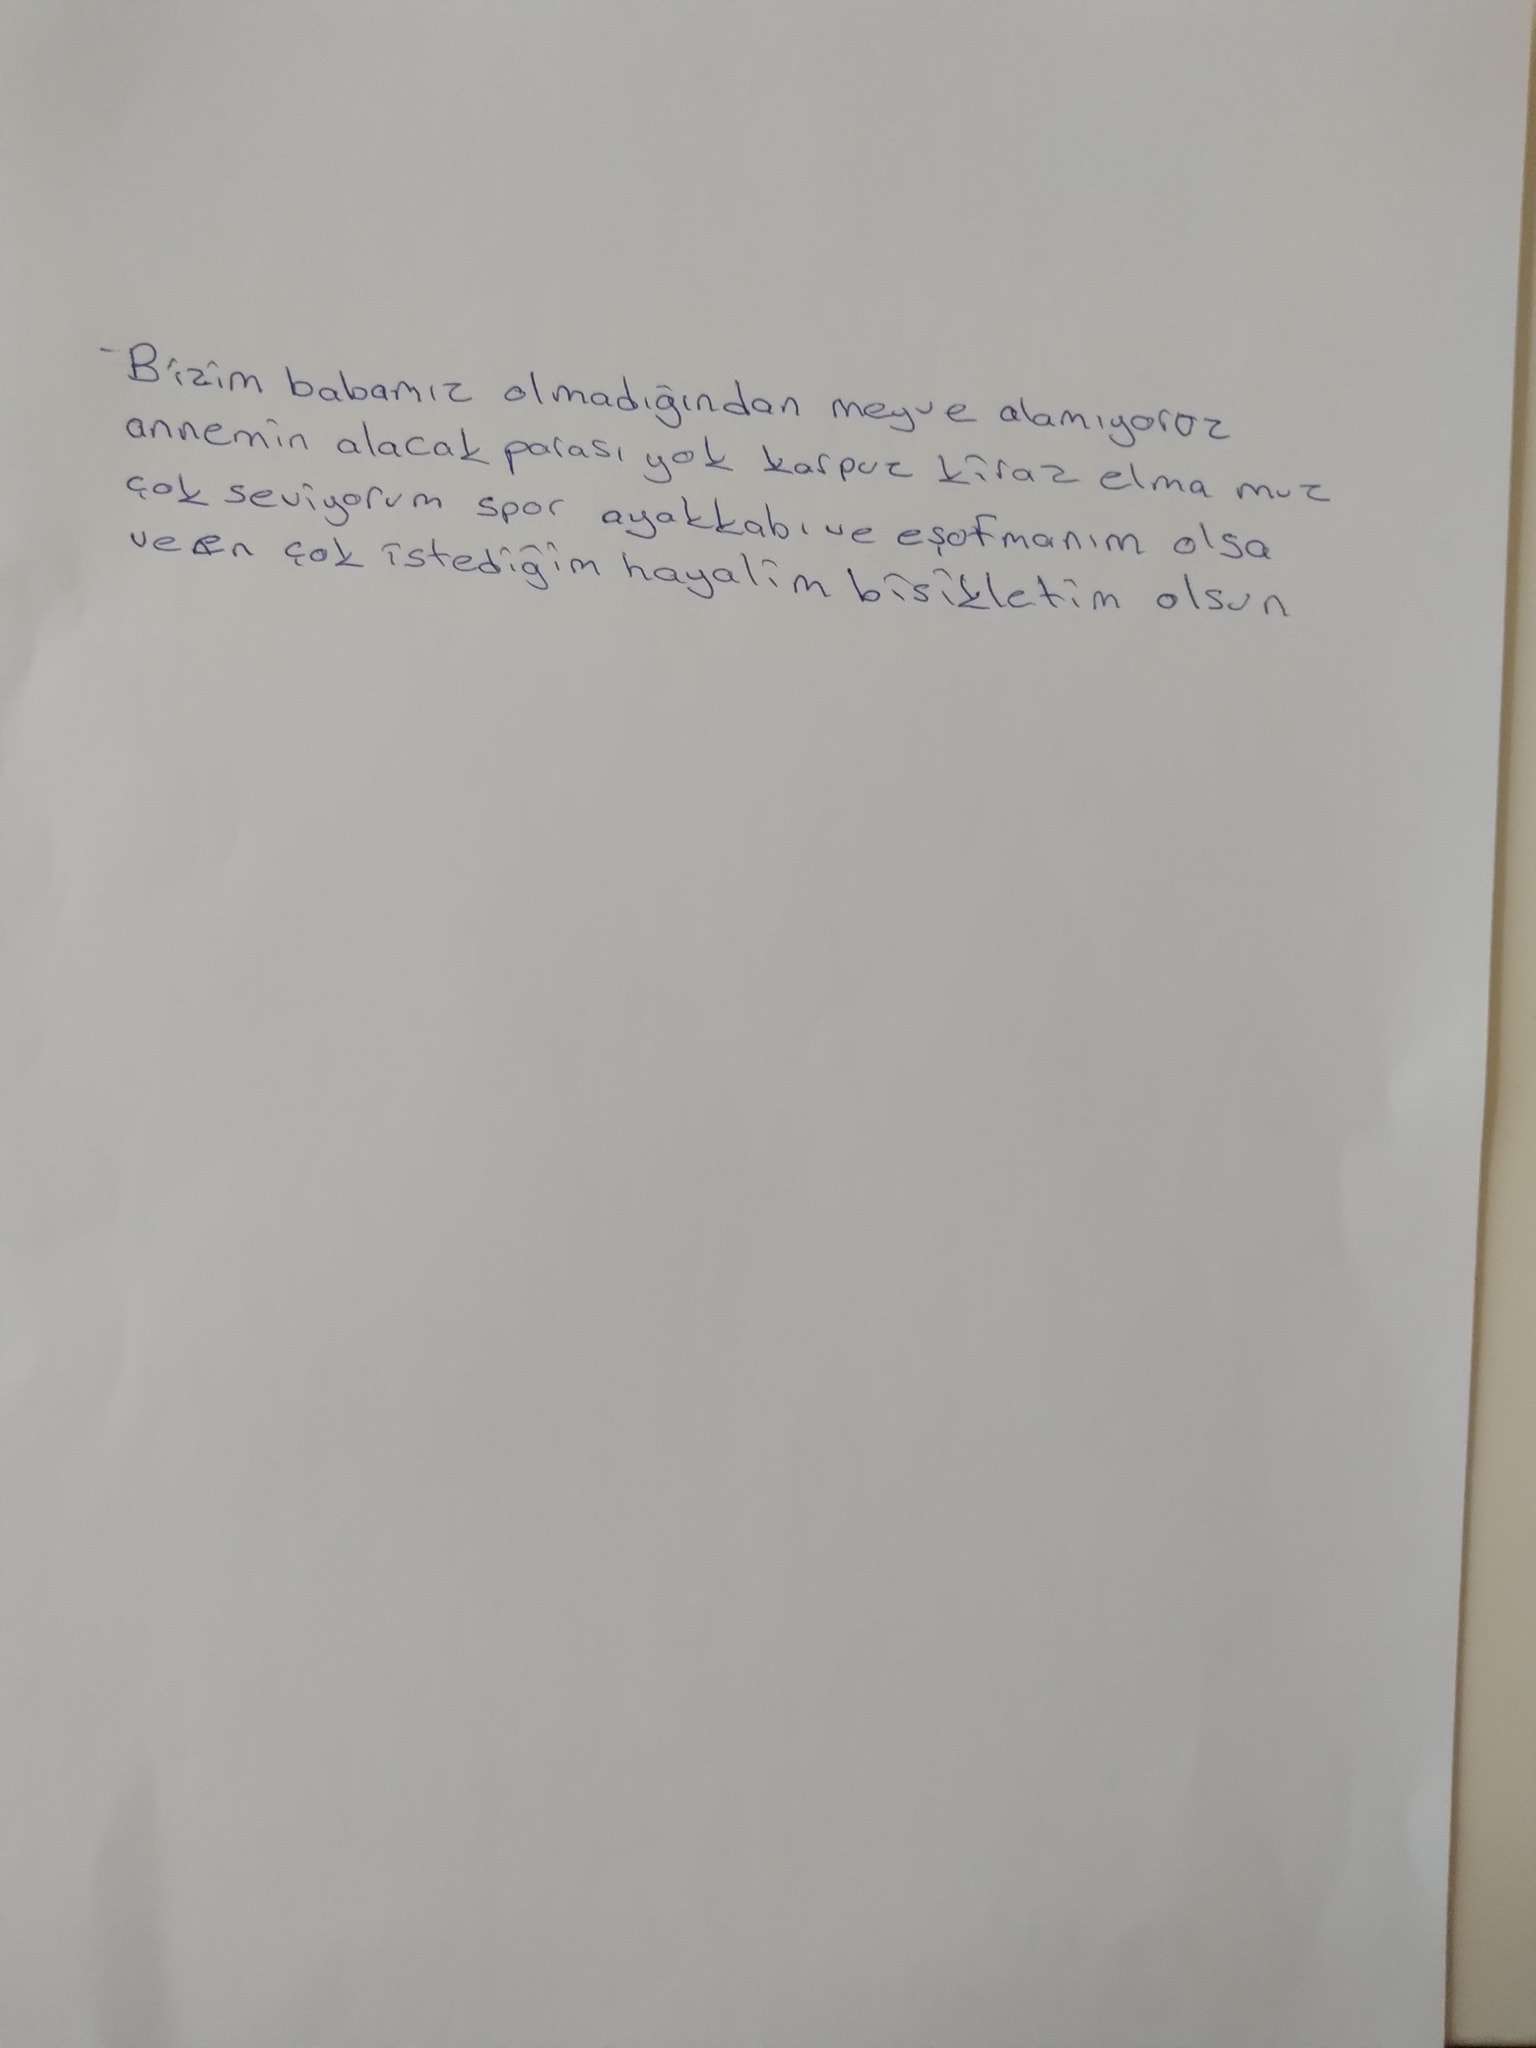 - Bizim babamız olmadığından meyve alamıyoruz
annemin alacak parası yok karpuz kiraz elma muz
çok seviyorum spor ayakkabı ve eşofmanım olsa
ve en çok istediğim hayalim bisikletim olsun